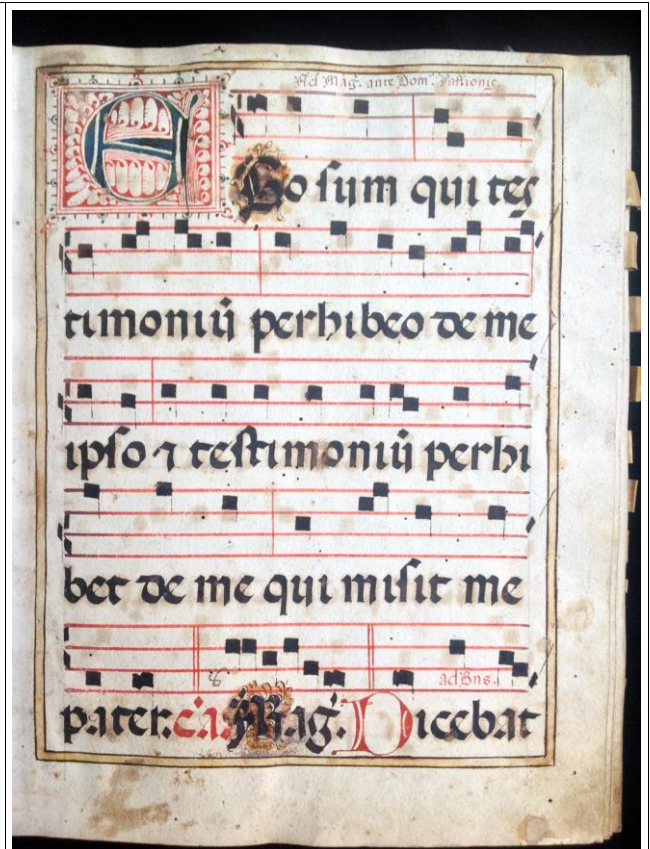 Ad Mag̃. ante Dom̃. Paſſionis
EGo ſum qui teſ
timoniũ perhibeo de me
ipſo ⁊ teſtimoniũ perhi
bet de me qui miſit me
ad Bns.
pater. Mag̃. Dicebat